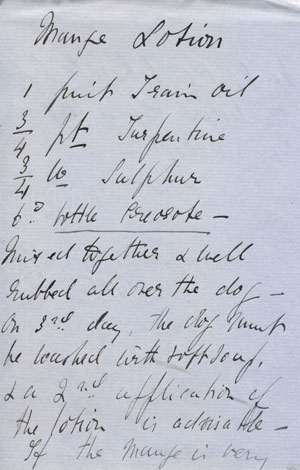 Mange Lotion
1 pint Train oil
3/4 pt Turpentine
3/4 lb Sulphur
6d bottle Creosote —
Mixed together & well
rubbed all over the dog —
on 3rd day, the dog must
be washed with soft soap,
& a 2nd application of
the lotion is advisable —
If the mange is very